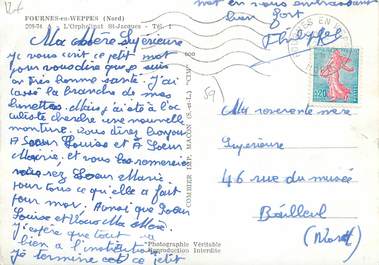 FOURNES-en-WEPPES (Nord)
208-74 A - L'Orphelinat St-Jacques - Tél. 1
Ma Mère Supérieure
je vous écrit ce petit mot
pour vous dire que je suis
en très bonne santé. J'ai
cassé la branche de mes
lunettes. Mais j'ai été à l'oc
culiste cherche une nouvelle
monture. Vous direz bonjour
A Soeur Louise et A Soeur
Marie, et vous la remercie
Soeur Marie
pour tous ce qu'elle a fait
pour moi. Ainsi que Soeur
Louise et Vous Ma Mère.
J'espère que tout va
bien a l'institution
je termine cet ce petit
mot en vous embrassant
bien fort
COMBIER IMP. MACON (S.-et-L.) "CIM"
Photographie Véritable
Reproduction Interdite
59
0,20
Ma révérente mère
Supérieure
46 rue du musée
Bailleul
(Nord)